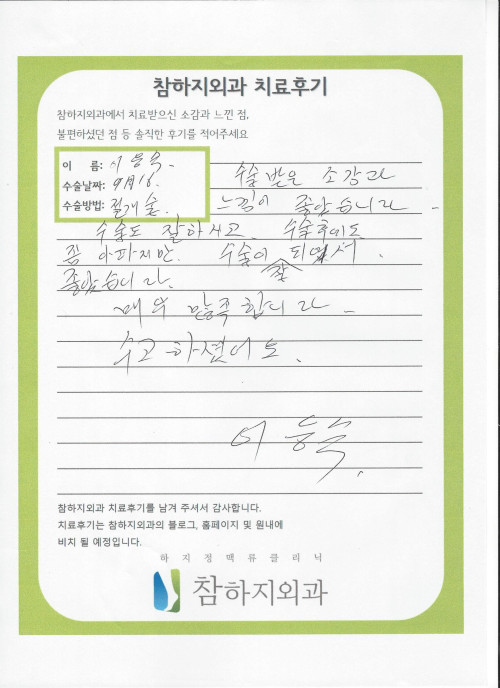 참하지외과 치료후기
참하지외과에서 치료받으신 소감과 느낀 점,
불편하셨던 점 등 솔직한 후기를 적어주세요
이 름:
수술날짜: 9月16.
수술방법: 절개술.
수술 받은 소감과
느낌이 좋았습니다
수술도 잘하시고 수술후에도
좀 아파지만. 수술이 잘 되었서.
좋았습니다.
매우 만족합니다
수고하셨어요.
참하지외과 치료후기를 남겨 주셔서 감사합니다.
치료후기는 참하지외과의 블로그, 홈페이지 및 원내에
비치 될 예정입니다.
하지정맥류클리닉
참하지외과